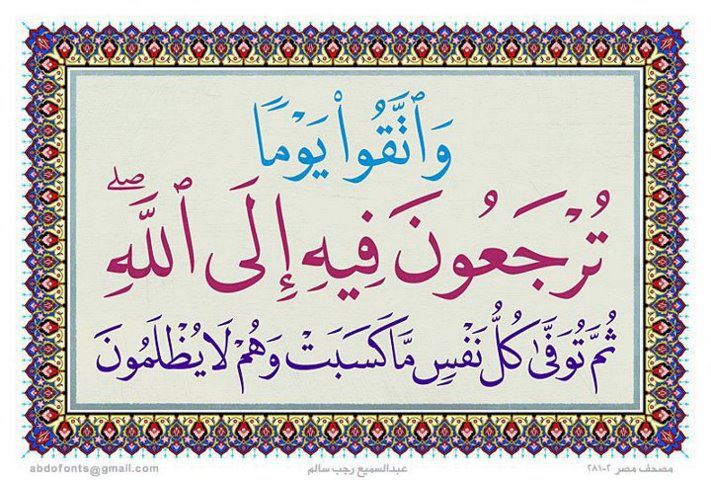 وَٱتَّقُوا۟ يَوْمًا
تُرْجَعُونَ فِيهِ إِلَى ٱللَّهِ ۖ
ثُمَّ تُوَفَّىٰ كُلُّ نَفْسٍ مَّا كَسَبَتْ وَهُمْ لَا يُظْلَمُونَ
مصحف مصر ٢-٢٨١
عبدالسميع رجب سالم
abdofonts@gmail.com